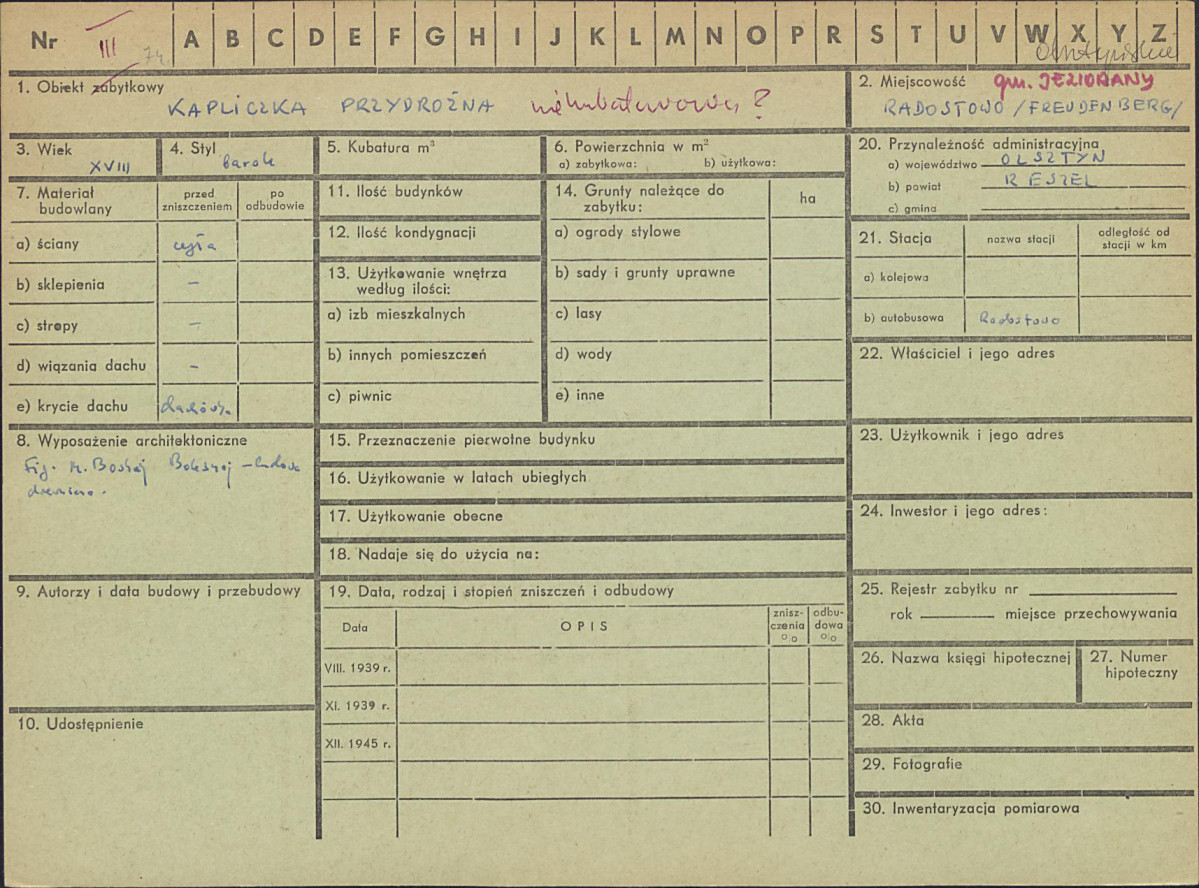 Nr III 74 A B C D E F G H I J K L M N O P R S T U V W X Y Z
olsztyńskie
1. Obiekt zabytkowy
KAPLICZKA PRZYDROŻNA
?
2. Miejscowość gm. JEZIORANY
RADOSTOWO /FREUDENBERG/
3. Wiek
XVIII
4. Styl
barok
5. Kubatura m³
6. Powierzchnia w m²
a) zabytkowa: b) użytkowa:
20. Przynależność administracyjna
a) województwo OLSZTYN
b) powiat RESZEL
c) gmina
7. Materiał budowlany
przed zniszczeniem
po odbudowie
a) ściany cegła
b) sklepienia –
c) stropy –
d) wiązania dachu –
e) krycie dachu dachówk.
11. Ilość budynków
12. Ilość kondygnacji
13. Użytkowanie wnętrza
według ilości:
a) izb mieszkalnych
b) innych pomieszczeń
c) piwnic
14. Grunty należące do
zabytku:
ha
a) ogrody stylowe
b) sady i grunty uprawne
c) lasy
d) wody
e) inne
21. Stacja
nazwa stacji
odległość od
stacji w km
a) kolejowa
b) autobusowa Radostowo
22. Właściciel i jego adres
8. Wyposażenie architektoniczne
Fig. M. Boskiej Bolesnej – ludowa
drewniana.
15. Przeznaczenie pierwotne budynku
16. Użytkowanie w latach ubiegłych
17. Użytkowanie obecne
18. Nadaje się do użycia na:
23. Użytkownik i jego adres
24. Inwestor i jego adres:
9. Autorzy i data budowy i przebudowy
19. Data, rodzaj i stopień zniszczeń i odbudowy
Data
OPIS
znisz-
czenia
%
odbu-
dowa
%
VIII. 1939 r.
XI. 1939 r.
XII. 1945 r.
25. Rejestr zabytku nr
rok miejsce przechowywania
26. Nazwa księgi hipotecznej
27. Numer
hipoteczny
10. Udostępnienie
28. Akta
29. Fotografie
30. Inwentaryzacja pomiarowa